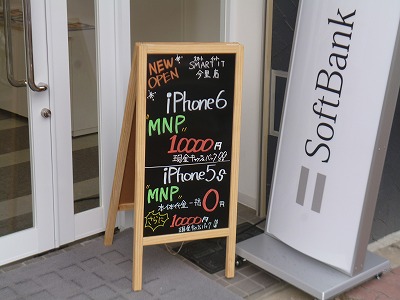 NEW
OPEN
iPhone6
"MNP"
10000円
現金キャッシュバック!!
iPhone5s
"MNP"
本体代金一括 0円
さらに
10000円
現金キャッシュバック
SoftBank